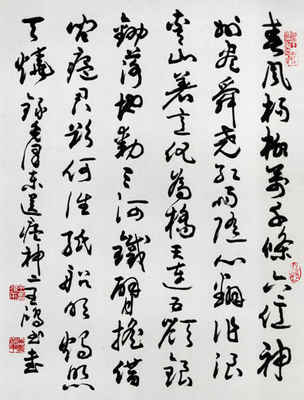 春風楊柳萬千條六億神
州盡舜堯紅雨隨心翻作浪
青山著意化為橋天連五嶺銀
鋤落地動三河鐵臂搖借
問瘟君欲何往紙船明燭照
天燒錄毛澤東送瘟神二王